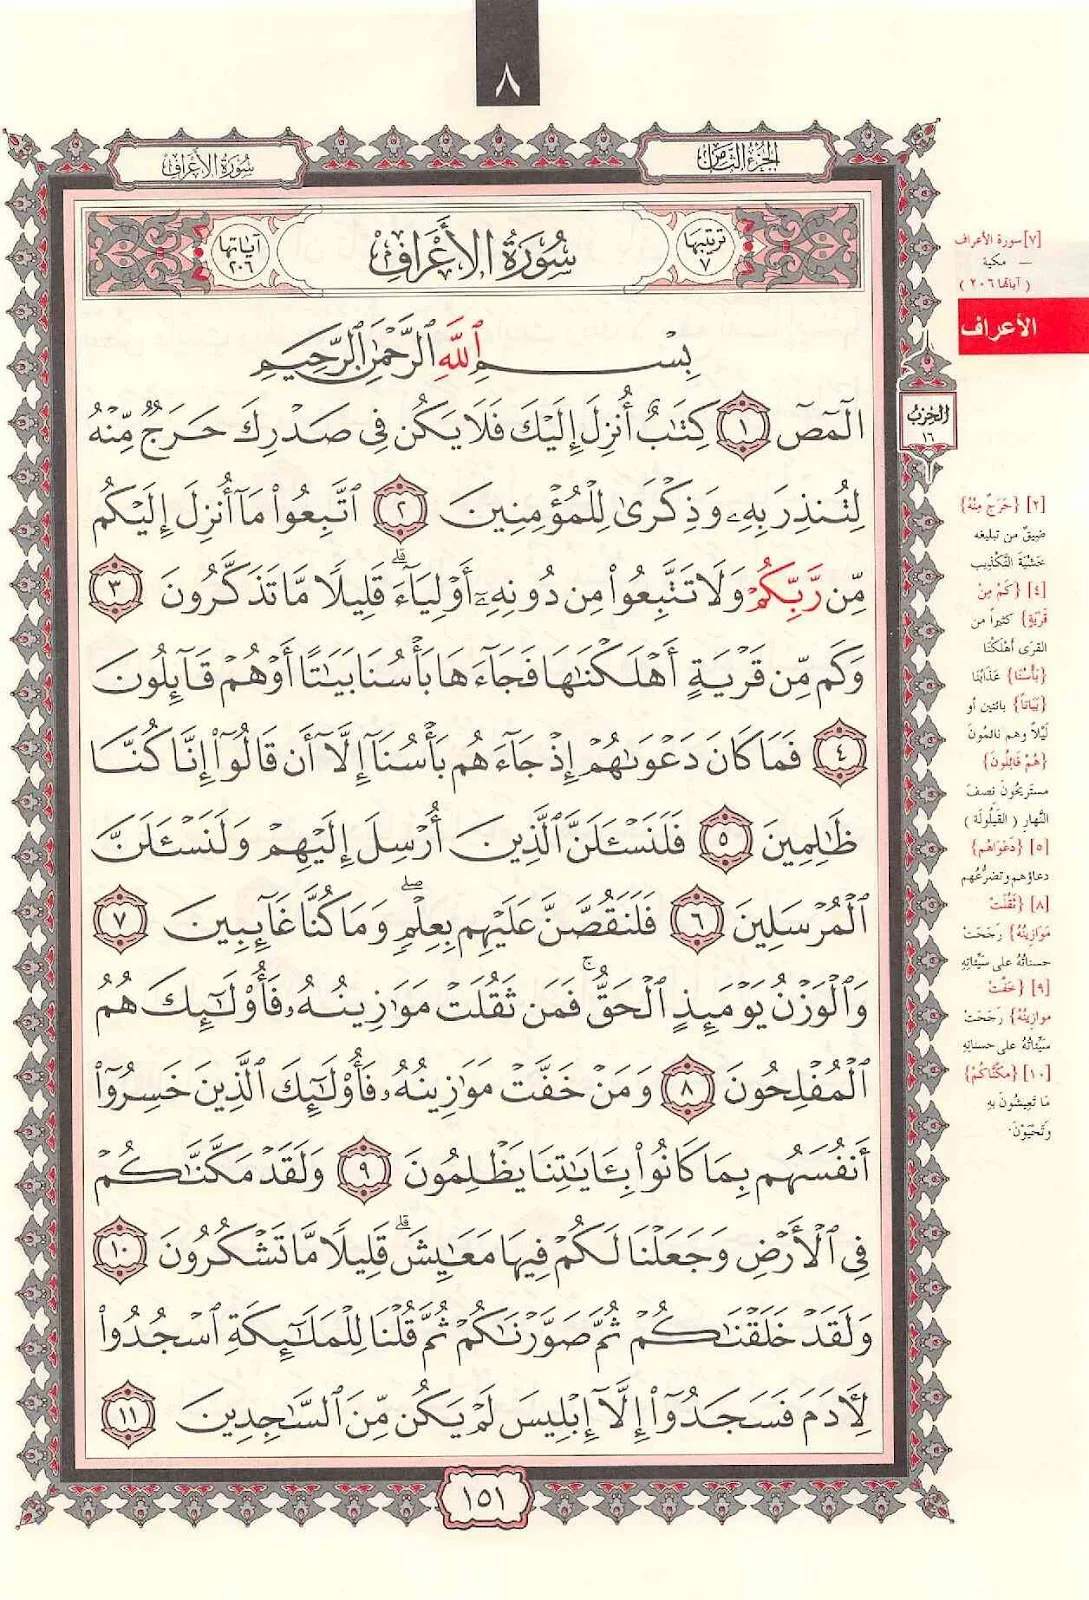 ٨
الجزء الثامن
سورة الأعراف
ترتيبها ٧
سُورَةُ الأَعْرَافِ
آياتها ٢٠٦
بِسْمِ ٱللَّهِ ٱلرَّحْمَٰنِ ٱلرَّحِيمِ
الٓمٓصٓ ١ كِتَٰبٌ أُنزِلَ إِلَيْكَ فَلَا يَكُن فِى صَدْرِكَ حَرَجٌ مِّنْهُ
لِتُنذِرَ بِهِۦ وَذِكْرَىٰ لِلْمُؤْمِنِينَ ٢ ٱتَّبِعُوا۟ مَآ أُنزِلَ إِلَيْكُم
مِّن رَّبِّكُمْ وَلَا تَتَّبِعُوا۟ مِن دُونِهِۦٓ أَوْلِيَآءَ ۗ قَلِيلًا مَّا تَذَكَّرُونَ ٣
وَكَم مِّن قَرْيَةٍ أَهْلَكْنَٰهَا فَجَآءَهَا بَأْسُنَا بَيَٰتًا أَوْ هُمْ قَآئِلُونَ
٤ فَمَا كَانَ دَعْوَىٰهُمْ إِذْ جَآءَهُم بَأْسُنَآ إِلَّآ أَن قَالُوٓا۟ إِنَّا كُنَّا
ظَٰلِمِينَ ٥ فَلَنَسْـَٔلَنَّ ٱلَّذِينَ أُرْسِلَ إِلَيْهِمْ وَلَنَسْـَٔلَنَّ
ٱلْمُرْسَلِينَ ٦ فَلَنَقُصَّنَّ عَلَيْهِم بِعِلْمٍ ۖ وَمَا كُنَّا غَآئِبِينَ ٧
وَٱلْوَزْنُ يَوْمَئِذٍ ٱلْحَقُّ ۚ فَمَن ثَقُلَتْ مَوَٰزِينُهُۥ فَأُو۟لَٰٓئِكَ هُمُ
ٱلْمُفْلِحُونَ ٨ وَمَنْ خَفَّتْ مَوَٰزِينُهُۥ فَأُو۟لَٰٓئِكَ ٱلَّذِينَ خَسِرُوٓا۟
أَنفُسَهُم بِمَا كَانُوا۟ بِـَٔايَٰتِنَا يَظْلِمُونَ ٩ وَلَقَدْ مَكَّنَّٰكُمْ
فِى ٱلْأَرْضِ وَجَعَلْنَا لَكُمْ فِيهَا مَعَٰيِشَ ۗ قَلِيلًا مَّا تَشْكُرُونَ ١٠
وَلَقَدْ خَلَقْنَٰكُمْ ثُمَّ صَوَّرْنَٰكُمْ ثُمَّ قُلْنَا لِلْمَلَٰٓئِكَةِ ٱسْجُدُوا۟
لِـَٔادَمَ فَسَجَدُوٓا۟ إِلَّآ إِبْلِيسَ لَمْ يَكُن مِّنَ ٱلسَّٰجِدِينَ ١١
١٥١
[٧] سورة الأعراف
— مكية
( آياتها ٢٠٦ )
الأعراف
الحزب
١٦
[٢] {حَرَجٌ مِنْهُ}
ضِيقٌ من تبليغه
خَشْيَةَ التَّكْذِيبِ
[٤] {كَمْ مِنْ
قَرْيَةٍ} كثيراً من
القرَى أهْلَكْنَا
{بَأْسُنَا} عَذَابُنَا
{بَيَاتاً} بائتين أو
لَيْلاً وهم نائمُونَ
{هُمْ قَائِلُونَ}
مستريحُونَ نِصفَ
النَّهارِ ( القَيلُولَة )
[٥] {دَعْوَاهُم}
دعاؤهم وتضرُّعُهم
[٨] {ثَقُلَتْ
مَوَازِينُهُ} رَجَحَتْ
حسناتُهُ على سَيِّئاتِهِ
[٩] {خَفَّتْ
موازِينُهُ} رَجَحَتْ
سَيِّئاتُهُ على حسناتِهِ
[١٠] {مَكَّنَّاكُمْ}
مَا تَعِيشُونَ بِهِ
وَتَحْيَوْنَ.